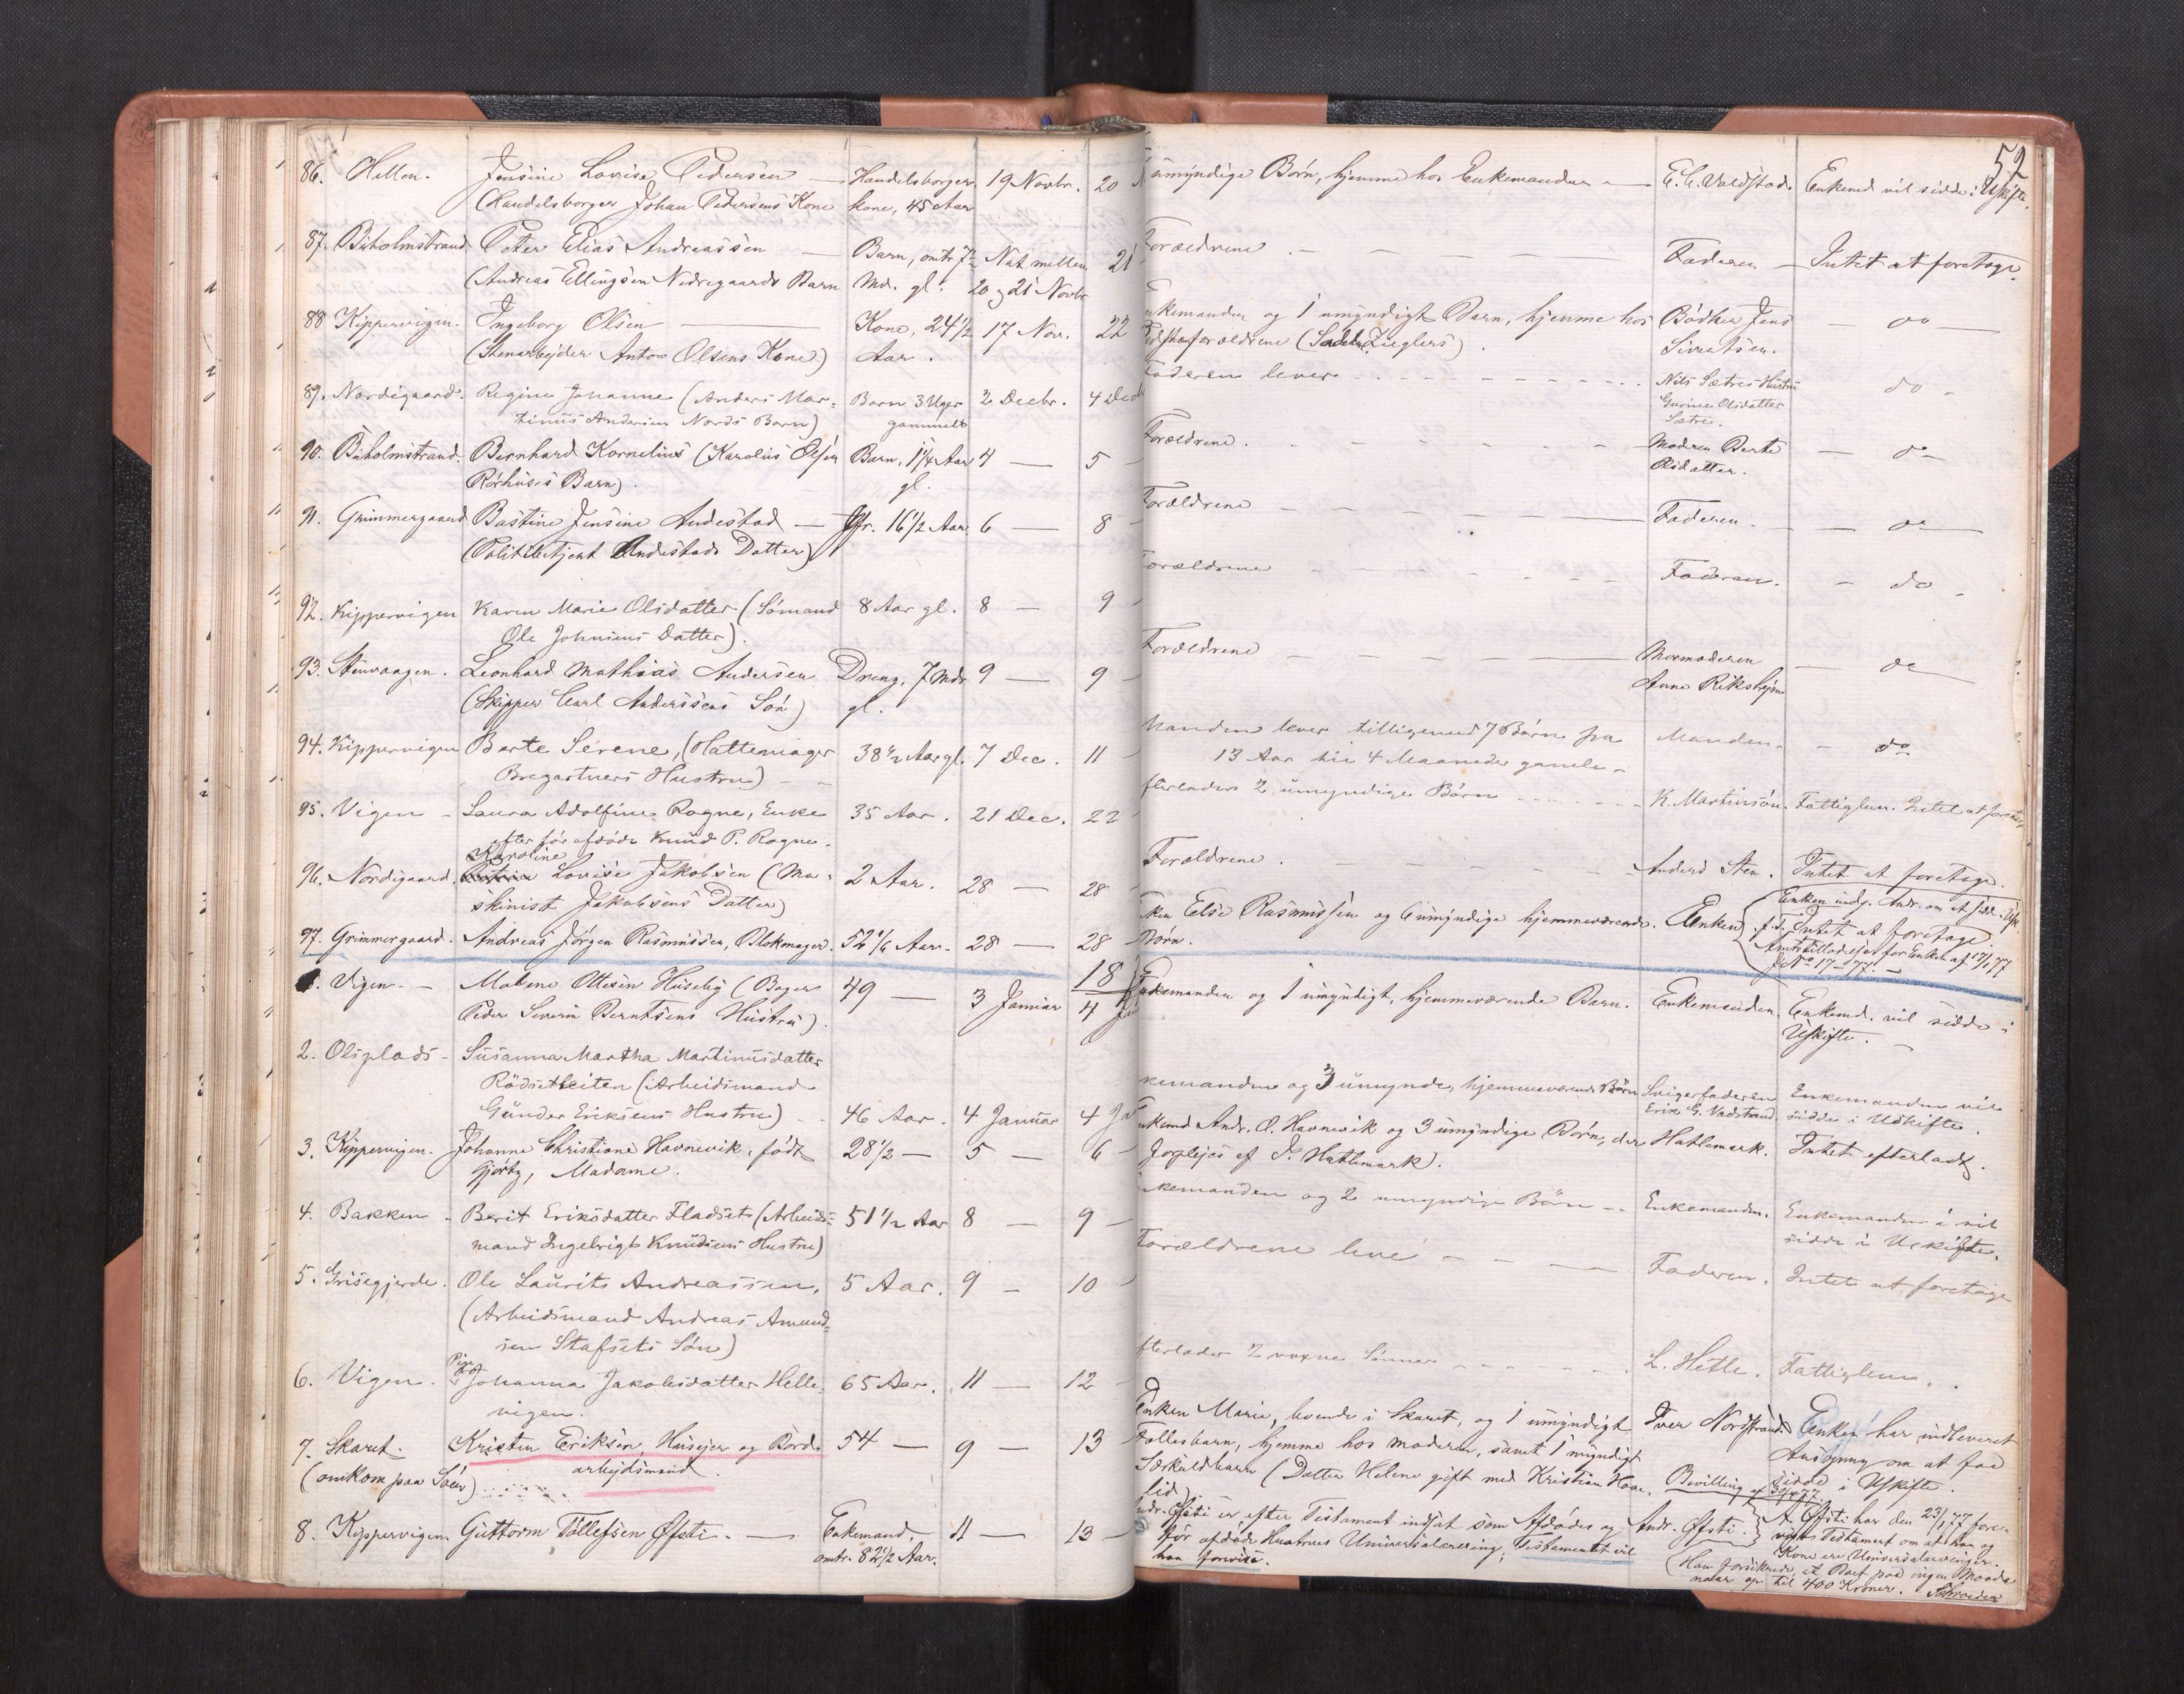 52
86. Hellen. Jensine Lovise Pedersen — Handelsborger 19 Novbr. 20
(Handelsborger Johan Pedersens Kone kone, 45 Aar
umyndige Børn, hjemme hos Enkemanden — Enkemd vil sidde i Uskifte.
87. Buholmstrand Peter Elias Andreassen — Barn, omtr 7 Nat mellem 21
(Andreas Ellingsen Nedregaards Barn Md. gl. 20 og 21 Novbr
Forældrene — — — Faderen — Intet at foretage.
88 Kippervigen. Ingeborg Olsen — Kone, 24 1/2 17 Nov. 22
(Stenarbejder Anton Olsens Kone) Aar.
Enkemanden og 1 umyndigt Barn, hjemme hos Bødker Jens — do —
Sivertsen.
89. Nordigaard. Regine Johanne (Anders Mar= Barn 3 Uger 2 Decbr. 4 Decb
tinus Andersen Nords Barn) gammelt
Faderen lever — Nils Sætres Hustru do -
Gurine Olsdatter
Sætre.
90. Buholmstrand. Bernhard Kornelius (Karolus Olsen Barn, 1 1/4 Aar 4 — 5 -
Rørhuses Barn). gl.
Forældrene. — — — Moderen Berte — do —
Olsdatter.
91. Grimmergaard Bastine Jensine Andestad — Jfr. 16 1/2 Aar 6 — 8 -
(Politibetjent Andestads Datter)
Forældrene — — — Faderen. — do —
92. Kippervigen Karen Marie Olsdatter (Sømand 8 Aar gl. 8 — 9 -
Ole Johnsens Datter).
Forældrene — — — Faderen. — do -
93. Stenvaagen. Leonhard Mathias Andersen Dreng, 7 Mdr 9 — 9 -
(Skipper Carl Anderssens Søn) gl.
Forældrene — — — Mormoderen — do —
Anne Riksheim
94. Kippervigen Berte Serene, (Hattemager 38 1/2 Aar gl. 7 Dec. 11 -
Bregartners Hustru) —
Manden lever tilligemed 7 Børn fra Manden. - do
13 Aar til 4 Maaneder gamle -
95. Vigen - Laura Adolfine Rogne, Enke 35 Aar. 21 Dec. 22
efter før afdøde Knud P. Rogne.
fterlader 2 umyndige Børn - - - K. Martinsøn. Fattiglem. Intet at foretage
Karoline
96. Nordigaard. Lovise Jakobsen (Ma= 2 Aar. 28 — 28 -
skinist Jakobsens Datter)
Forældrene. — — — Anders Sten. Intet at foretage.
97. Grimmergaard. Andreas Jørgen Rasmussen, Blokmager. 52 1/6 Aar. 28 — 28
Enken Else Rasmussen og 6 umyndige hjemmeværende Børn. Enken
Enken indg. Andr. om at sidde i Usk.
f. T. Intet at foretage.
Amtstilladelse for Enken af 17/1 77
J No 17 - 77. -
18
. Vigen. - Malene Ottesen Huseby (Bager 49 — 3 Januar 4 Jan
Peder Severin Berntsens Hustru).
Enkemanden og 1 umyndigt, hjemmeværende Barn. Enkemanden. Enkemd. vil sidde i
Uskifte. -
2. Olsplads - Susanna Martha Martinusdatter
Rödsetleiten (Arbeidsmand
Gunder Eriksens Hustru) - 46 Aar. 4 Januar 4 Jan
kemanden og 3 umynde, hjemmeværende Børn Svigerfaderen Enkemanden vil
Erik G. Vadstrand sidde i Uskifte.
3. Kippervigen. Johanne Christiane Havnevik, født 28 1/2 — 5 — 6 -
Gjørtz, Madame.
Enkemd Andr. O. Havnevik og 3 umyndige Børn, der Hatlemark. Intet efterladt.
forplejes af J. Hatlemark).
4. Bakken - Berit Eriksdatter Fladset (Arbeids= 51 1/2 Aar 8 — 9 -
mand Ingebrigt Knudsens Hustru)
Enkemanden og 2 umyndige Børn - - Enkemanden. Enkemanden vil
sidde i Uskifte.
5. Grisegjerde. Ole Laurits Andreassen, 5 Aar. 9 - 10 -
(Arbeidsmand Andreas Amund=
sen Stafsets Søn)
Forældrene leve - - — Faderen. Intet at foretage
6. Vigen. Pige Johanna Jakobsdatter Helle= 65 Aar. 11 — 12 -
vigen.
fterlader 2 voxne Sønner - - - L. Hetle. Fattiglem.
7. Skaret. Kristen Eriksen, Husejer og Bord= 54 — 9 — 13
(omkom paa Søen) arbejdsmand.
Enken Marie, boende i Skaret, og 1 umyndigt Iver Nordstrand. Enken har indleveret
Fellesbarn, hjemme hos moderen, samt 1 myndigt Ansøgning om at faa
Særkuldbarn (Datter Helene gift med Kristian Hov= sidde i Uskifte.
lid) Bevilling af
8. Kippervigen. Guttorm Tollefsen Øfsti - — Enkemand. 11 — 13 -
omtr. 82 1/2 Aar.
Andr. Øfsti er efter Testament indsat som Afdødes og Andr. Øfsti. A. Øfsti har den 23/1 77 fore=
før afdøde Hustrus Universalarving; Testamentet vil vist Testament om at han og
han forevise. Kone ere Universalarvinger.
(Han forsikrede, at Boet paa ingen Maade
naaer op til 400 Kroner.